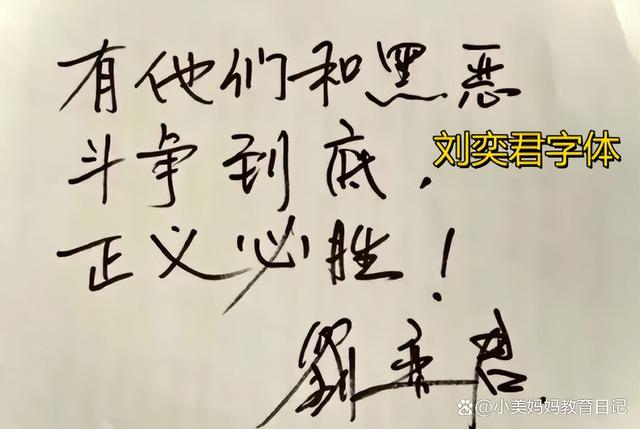 有他们和黑恶
斗争到底，
刘奕君字体
正义必胜！
劉奕君
@小美妈妈教育日记